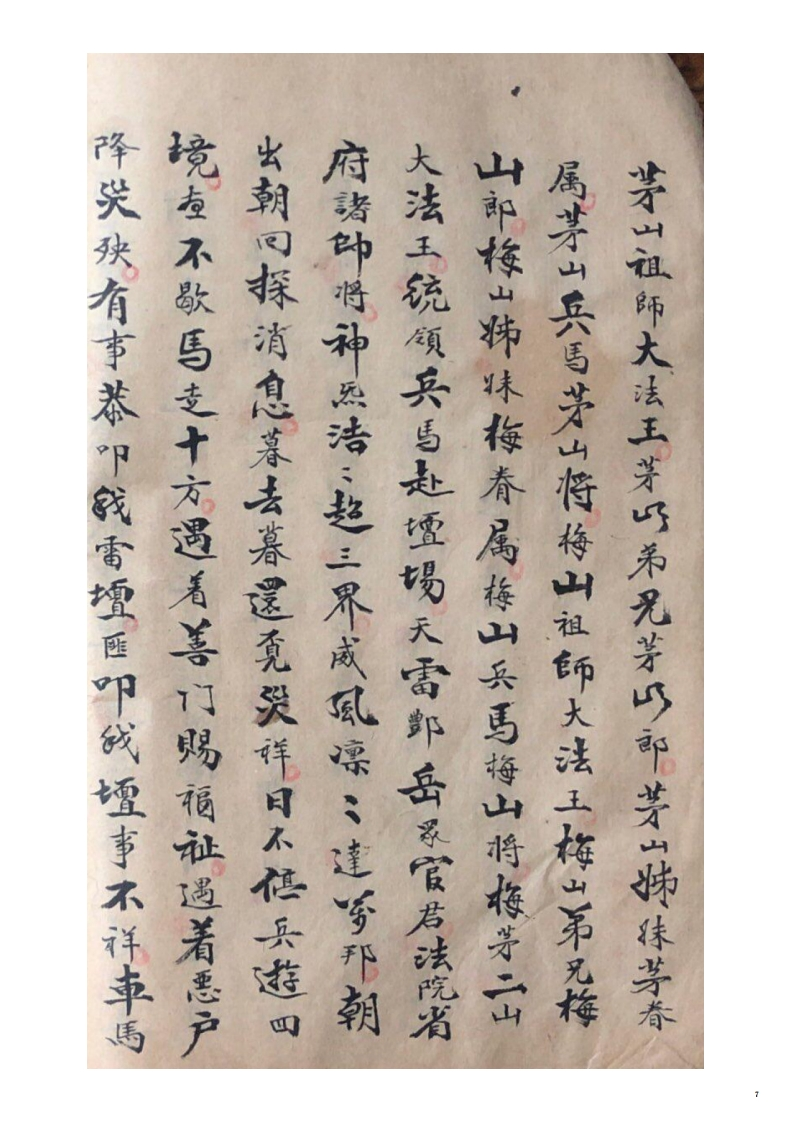 茅山祖師大法王茅山弟兄茅山郎茅山姊妹茅眷
属茅山兵馬茅山将梅山祖師大法王梅山弟兄梅
山郎梅山姊妹梅眷属梅山兵馬梅山将梅茅二山
大法王統領兵馬赴壇場天雷酆岳眾官君法院省
府諸帥将神炁浩〻超三界威風凛〻達萬邦朝
出朝回探消息暮去暮還覔災祥日不停兵遊四
境夜不歇馬走十方遇着善门賜福祉遇着恶户
降災殃有事恭叩我雷壇匪叩我壇事不祥車馬
7